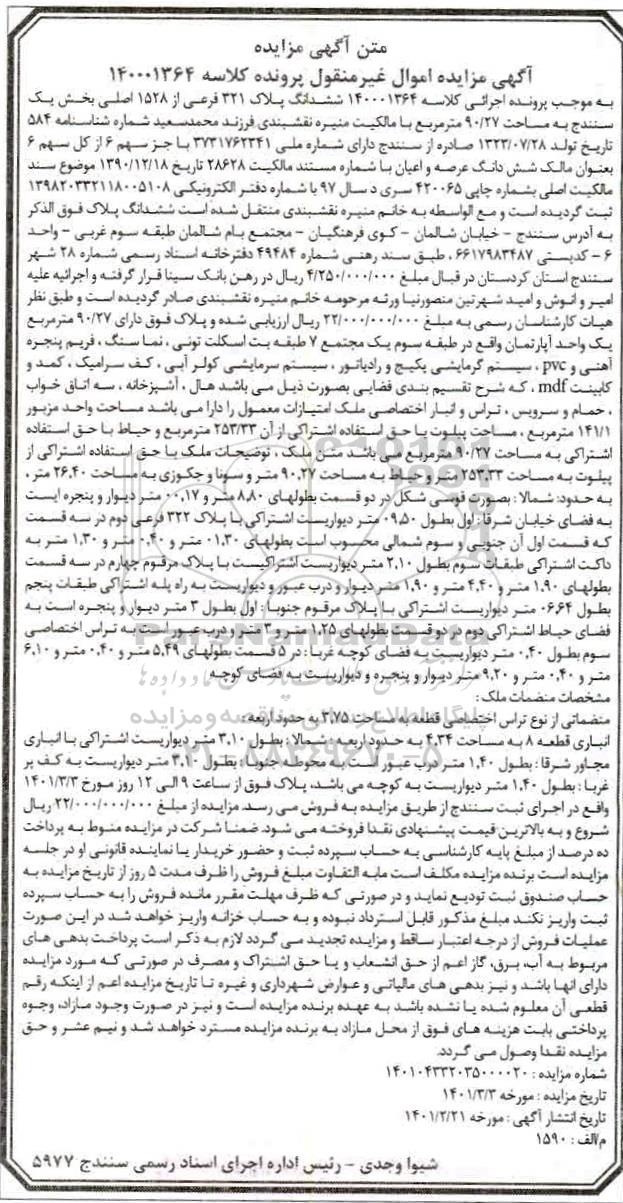 متن آگهی مزایده
آگهی مزایده اموال غیرمنقول پرونده کلاسه ۱۴۰۰۰۱۳۶۴
به موجب پرونده اجرائی کلاسه ۱۴۰۰۰۱۳۶۴ ششدانگ پلاک ۳۲۱ فرعی از ۱۵۲۸ اصلی بخش یک
سنندج به مساحت ۹۰/۲۷ مترمربع با مالکیت منیره نقشبندی فرزند محمدسعید شماره شناسنامه ۵۸۴
تاریخ تولد ۱۳۲۳/۰۷/۲۸ صادره از سنندج دارای شماره ملی ۳۷۳۱۷۶۲۳۴۱ با جز سهم ۶ از کل سهم ۶
بعنوان مالک شش دانگ عرصه و اعیان با شماره مستند مالکیت ۲۸۶۲۸ تاریخ ۱۳۹۰/۱۲/۱۸ موضوع سند
مالکیت اصلی بشماره چاپی ۴۲۰۰۶۵ سری د سال ۹۷ با شماره دفتر الکترونیکی ۱۳۹۸۲۰۳۳۲۱۱۸۰۰۵۱۰۸
ثبت گردیده است و مع الواسطه به خانم منیره نقشبندی منتقل شده است ششدانگ پلاک فوق الذکر
به آدرس سنندج - خیابان شالمان - کوی فرهنگیان - مجتمع بام شالمان طبقه سوم غربی - واحد
۶ - کدپستی ۶۶۱۷۹۸۳۴۸۷ ، طبق سند رهنی شماره ۴۹۴۸۴ دفترخانه اسناد رسمی شماره ۲۸ شهر
سنندج استان کردستان در قبال مبلغ ۴/۲۵۰/۰۰۰/۰۰۰ ریال در رهن بانک سینا قرار گرفته و اجرائیه علیه
امیر و انوش و امید شهرتین منصورنیا ورثه مرحومه خانم منیره نقشبندی صادر گردیده است و طبق نظر
هیات کارشناسان رسمی به مبلغ ۲۲/۰۰۰/۰۰۰/۰۰۰ ریال ارزیابی شده و پلاک فوق دارای ۹۰/۲۷ مترمربع
یک واحد آپارتمان واقع در طبقه سوم یک مجتمع ۷ طبقه بت اسکلت تونی ، نما سنگ ، فریم پنجره
آهنی و pvc ، سیستم گرمایشی پکیج و رادیاتور ، سیستم سرمایشی کولر آبی ، کف سرامیک ، کمد و
کابینت mdf ، که شرح تقسیم بندی فضایی بصورت ذیل می باشد هال ، آشپزخانه ، سه اتاق خواب
، حمام و سرویس ، تراس و انبار اختصاصی ملک امتیازات معمول را دارا می باشد مساحت واحد مزبور
۱۴۱/۱ مترمربع ، مساحت پیلوت با حق استفاده اشتراکی از آن ۲۵۳/۳۳ مترمربع و حیاط با حق استفاده
اشتراکی به مساحت ۹۰/۲۷ مترمربع می باشد متن ملک ، توضیحات ملک با حق استفاده اشتراکی از
پیلوت به مساحت ۲۵۳,۳۳ متر و حیاط به مساحت ۹۰,۲۷ متر و سونا و جکوزی به مساحت ۲۶,۴۰ متر ،
به حدود: شمالا : بصورت قوسی شکل در دو قسمت بطولهای ۸,۸۰ متر و ۰۰,۱۷ متر دیوار و پنجره ایست
به فضای خیابان شرقا : اول بطول ۰۹,۵۰ متر دیواریست اشتراکی با پلاک ۳۲۲ فرعی دوم در سه قسمت
که قسمت اول آن جنوبی و سوم شمالی محسوب است بطولهای ۰۱,۳۰ متر و ۰,۴۰ متر و ۱,۳۰ متر به
داکت اشتراکی طبقات سوم بطول ۲,۱۰ متر دیواریست اشتراکیست با پلاک مرقوم چهارم در سه قسمت
بطولهای ۱,۹۰ متر و ۴,۴۰ متر و ۱,۹۰ متر دیوار و درب عبور و دیواریست به راه پله اشتراکی طبقات پنجم
بطول ۰۶,۶۴ متر دیواریست اشتراکی با پلاک مرقوم جنوبا : اول بطول ۳ متر دیوار و پنجره است به
فضای حیاط اشتراکی دوم در دو قسمت بطولهای ۱,۲۵ متر و ۳ متر و درب عبور است به تراس اختصاصی
سوم بطول ۰,۴۰ متر دیواریست به فضای کوچه غربا : در ۵ قسمت بطولهای ۵,۴۹ متر و ۰,۴۰ متر و ۶,۱۰
متر و ۰,۴۰ متر و ۹,۲۰ متر دیوار و پنجره و دیواریست به فضای کوچه
مشخصات منضمات ملک :
منضماتی از نوع تراس اختصاصی قطعه به مساحت ۳,۷۵ به حدود اربعه :
انباری قطعه ۸ به مساحت ۴,۳۴ به حدود اربعه : شمالا : بطول ۳,۱۰ متر دیواریست اشتراکی با انباری
مجاور شرقا : بطول ۱,۴۰ متر درب عبور است به محوطه جنوبا : بطول ۳,۱۰ متر دیواریست به کف پر
غربا : بطول ۱,۴۰ متر دیواریست به کوچه می باشد، پلاک فوق از ساعت ۹ الی ۱۲ روز مورخ ۱۴۰۱/۳/۳
واقع در اجرای ثبت سنندج از طریق مزایده به فروش می رسد. مزایده از مبلغ ۲۲/۰۰۰/۰۰۰/۰۰۰ ریال
شروع و به بالاترین قیمت پیشنهادی نقدا فروخته می شود. ضمنا شرکت در مزایده منوط به پرداخت
ده درصد از مبلغ پایه کارشناسی به حساب سپرده ثبت و حضور خریدار یا نماینده قانونی او در جلسه
مزایده است برنده مزایده مکلف است مابه التفاوت مبلغ فروش را ظرف مدت ۵ روز از تاریخ مزایده به
حساب صندوق ثبت تودیع نماید و در صورتی که ظرف مهلت مقرر مانده فروش را به حساب سپرده
ثبت واریز نکند مبلغ مذکور قابل استرداد نبوده و به حساب خزانه واریز خواهد شد در این صورت
عملیات فروش از درجه اعتبار ساقط و مزایده تجدید می گردد لازم به ذکر است پرداخت بدهی های
مربوط به آب، برق، گاز اعم از حق انشعاب و یا حق اشتراک و مصرف در صورتی که مورد مزایده
دارای آنها باشد و نیز بدهی های مالیاتی و عوارض شهرداری و غیره تا تاریخ مزایده اعم از اینکه رقم
قطعی آن معلوم شده یا نشده باشد به عهده برنده مزایده است و نیز در صورت وجود مازاد، وجوه
پرداختی بابت هزینه های فوق از محل مازاد به برنده مزایده مسترد خواهد شد و نیم عشر و حق
مزایده نقدا وصول می گردد.
شماره مزایده : ۱۴۰۱۰۴۳۳۲۰۳۵۰۰۰۰۲۰
تاریخ مزایده : مورخه ۱۴۰۱/۳/۳
تاریخ انتشار آگهی : مورخه ۱۴۰۱/۲/۲۱
م/الف : ۱۵۹۰
شیوا وجدی - رئیس اداره اجرای اسناد رسمی سنندج ۵۹۷۷